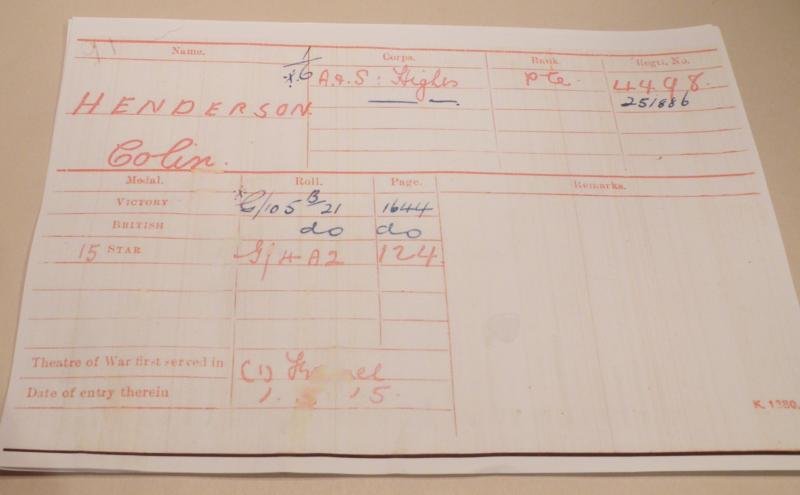 Name. Corps. Rank. Regtl. No.
A.&S: Highrs Pte. 4498.
251886
HENDERSON.
Colin.
Medal. Roll. Page. Remarks.
VICTORY G/105 B/21 1644
BRITISH do do
15 STAR G/4 A2 124.
Theatre of War first served in (1)
Date of entry therein 1. 5. 15.
K. 1380.